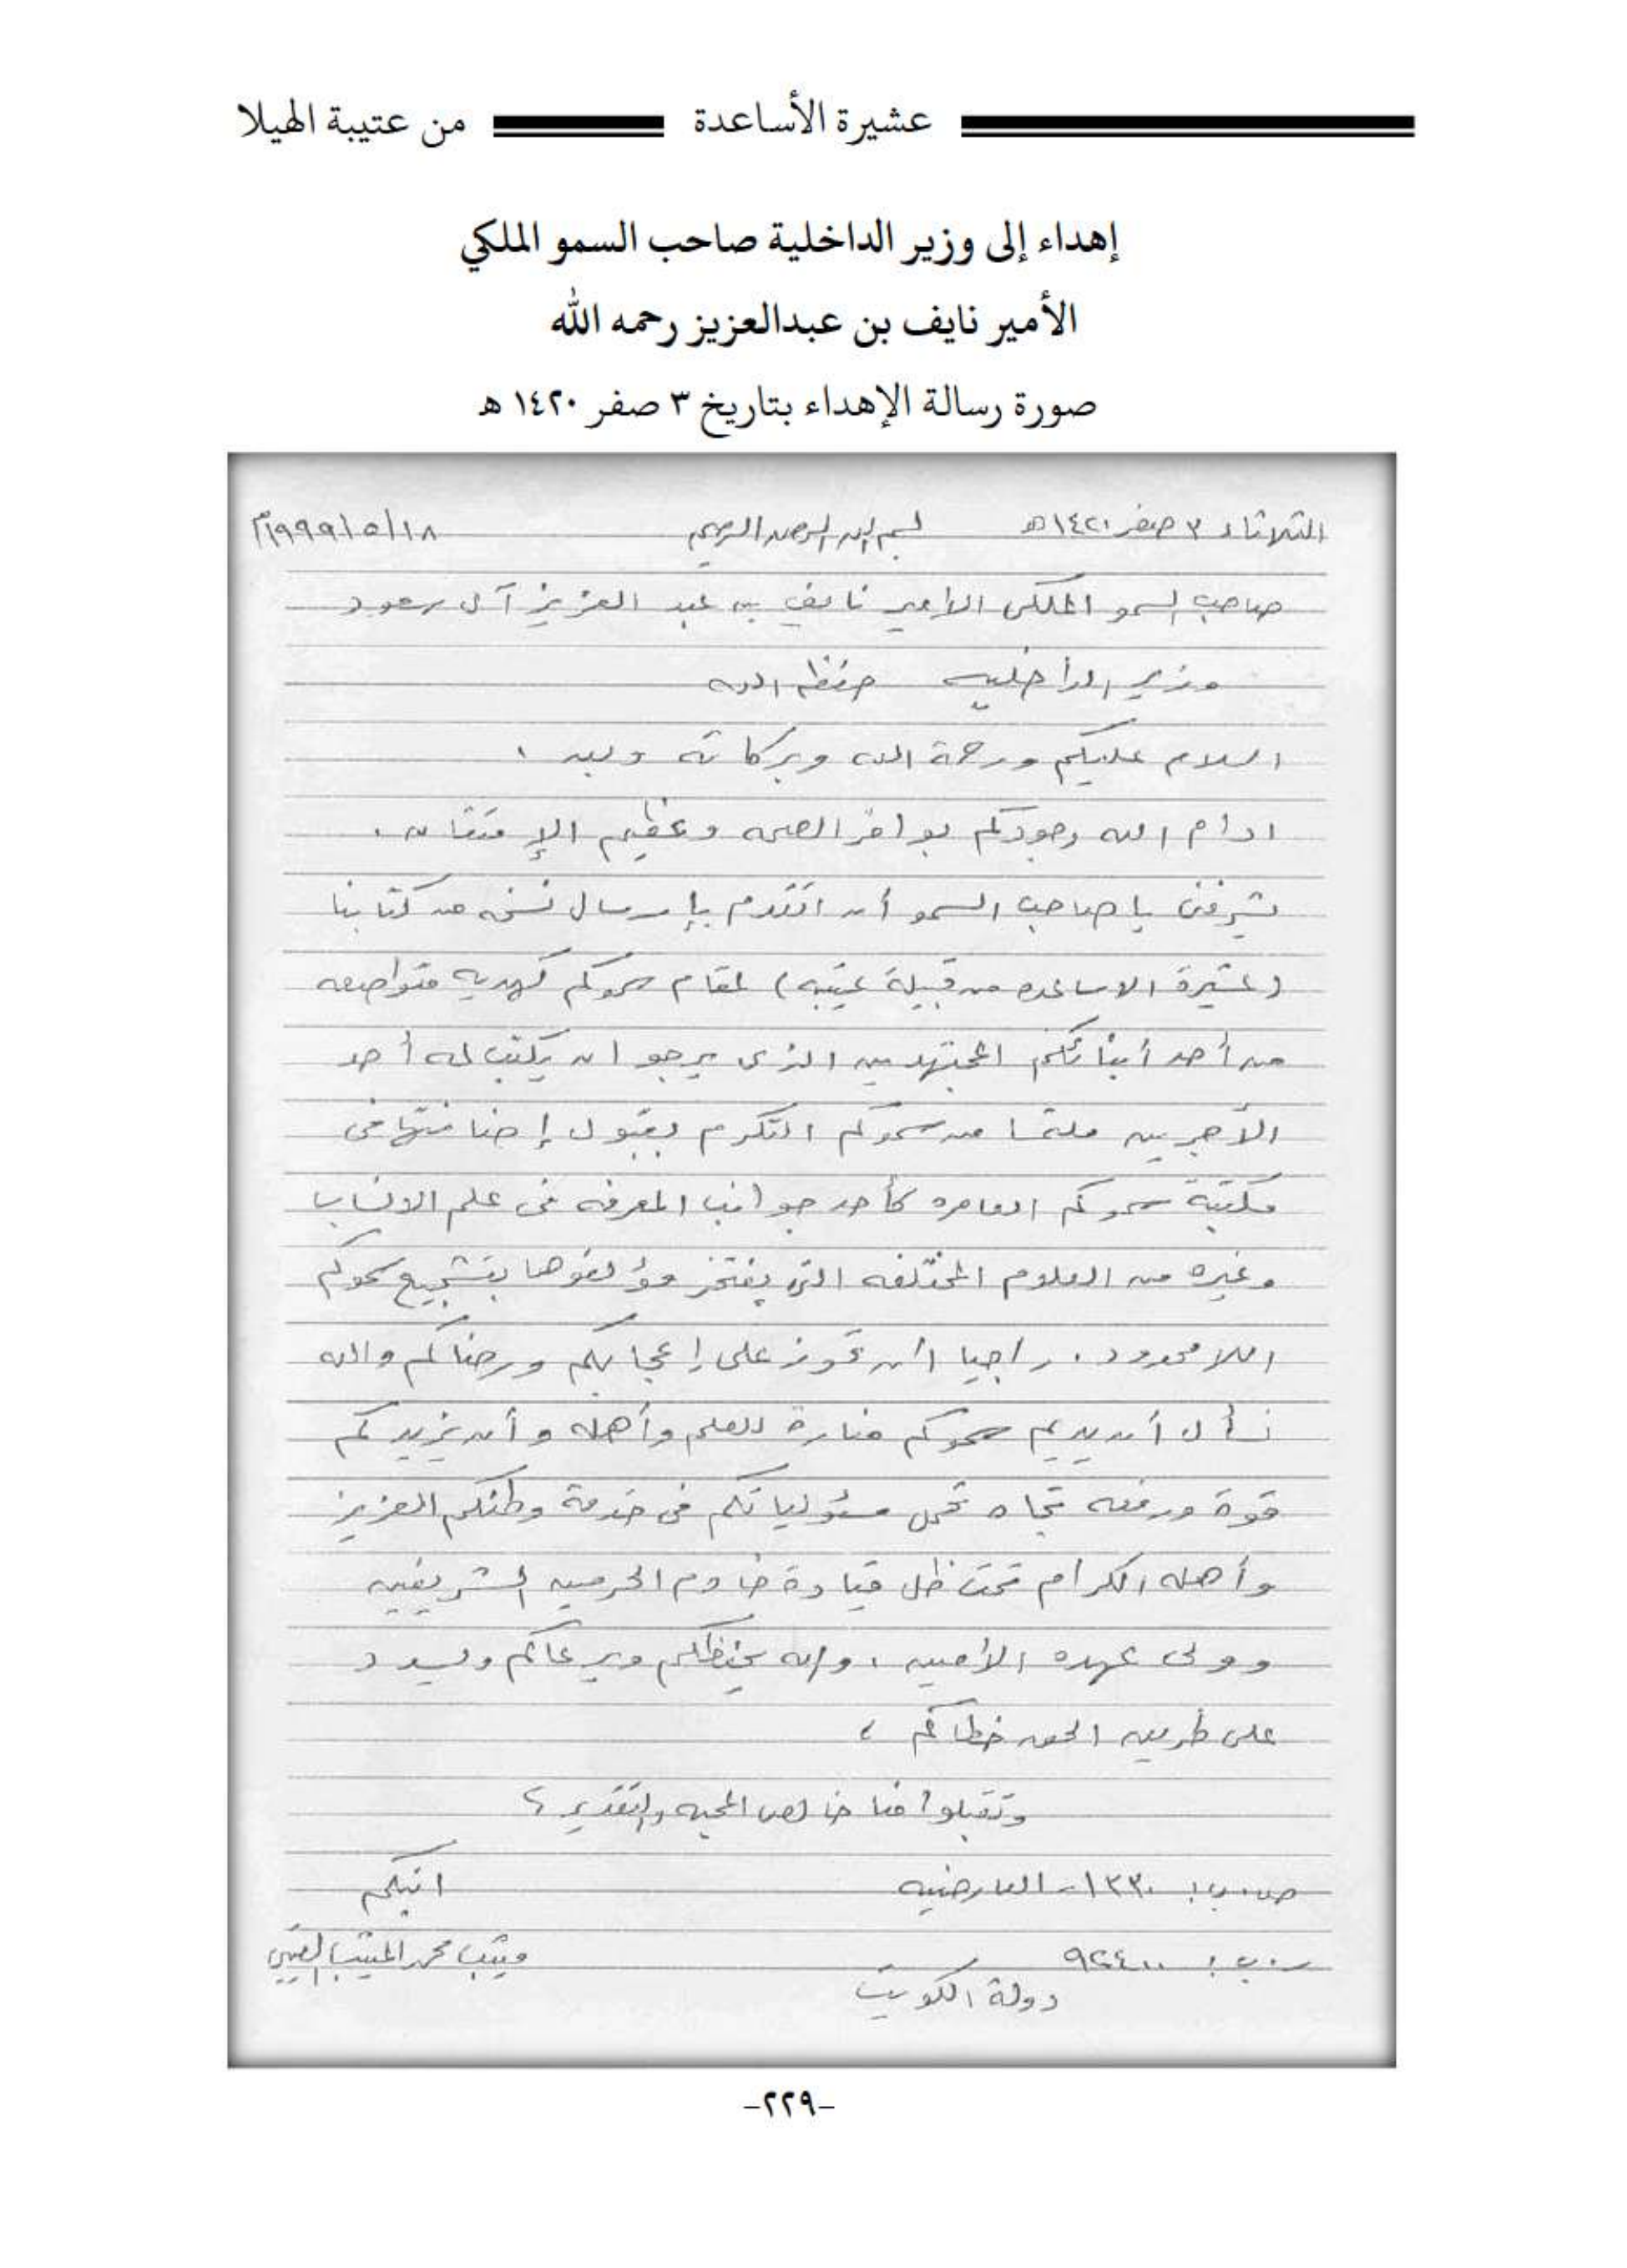 عشيرة الأساعدة من عتيبة الهيلا
إهداء إلى وزير الداخلية صاحب السمو الملكي
الأمير نايف بن عبدالعزيز رحمه الله
صورة رسالة الإهداء بتاريخ ٣ صفر ١٤٢٠ هـ
الثلاثاء ٣ صفر ١٤٢٠هـ بسم الله الرحمن الرحيم ١٨/٥/١٩٩٩م
صاحب السمو الملكى الامير نايف بن عبد العزيز آل سعود
وزير الداخليه حفظه الله
السلام عليكم ورحمة الله وبركاته وبعد ،
ادام الله وجودكم بوافر الصحه وعظيم الإمتنان .
يشرفنى يا صاحب السمو أن اتقدم بإرسال نسخه من كتابنا
(عشيرة الاساعده من قبيلة عتيبه) لمقام سموكم كهديه متواضعه
من أحد أبنائكم المجتهدين الذى يرجو ان يكتب له أحد
الأجرين ملتمسا من سموكم التكرم بقبول إضافتها فى
مكتبة سموكم العامره كأحد جوانب المعرفه فى علم الانساب
وغيره من العلوم المختلفه التى يفتخر مؤلفوها بتشجيع سموكم
اللامحدود . راجيا أن تحوز على إعجابكم ورضاكم والله
نسأل أن يديم سموكم منارة للعلم وأهله وأن يزيدكم
قوة ورفعه تجاه تحمل مسئولياتكم فى خدمة وطنكم العزيز
وأهله الكرام تحت ظل قيادة خادم الحرمين الشريفين
وولى عهده الأمين ، والله يحفظكم ويرعاكم ويسدد
على طريق الحق خطاكم ،
وتقبلوا منا خالص المحبه والتقدير ،
ص.ب: ١٣٣٠ - العارضيه ابنكم
ر.ب: ٩٢٤٠٠ متعب محمد المتعب العتيبي
دولة الكويت
-٢٢٩-